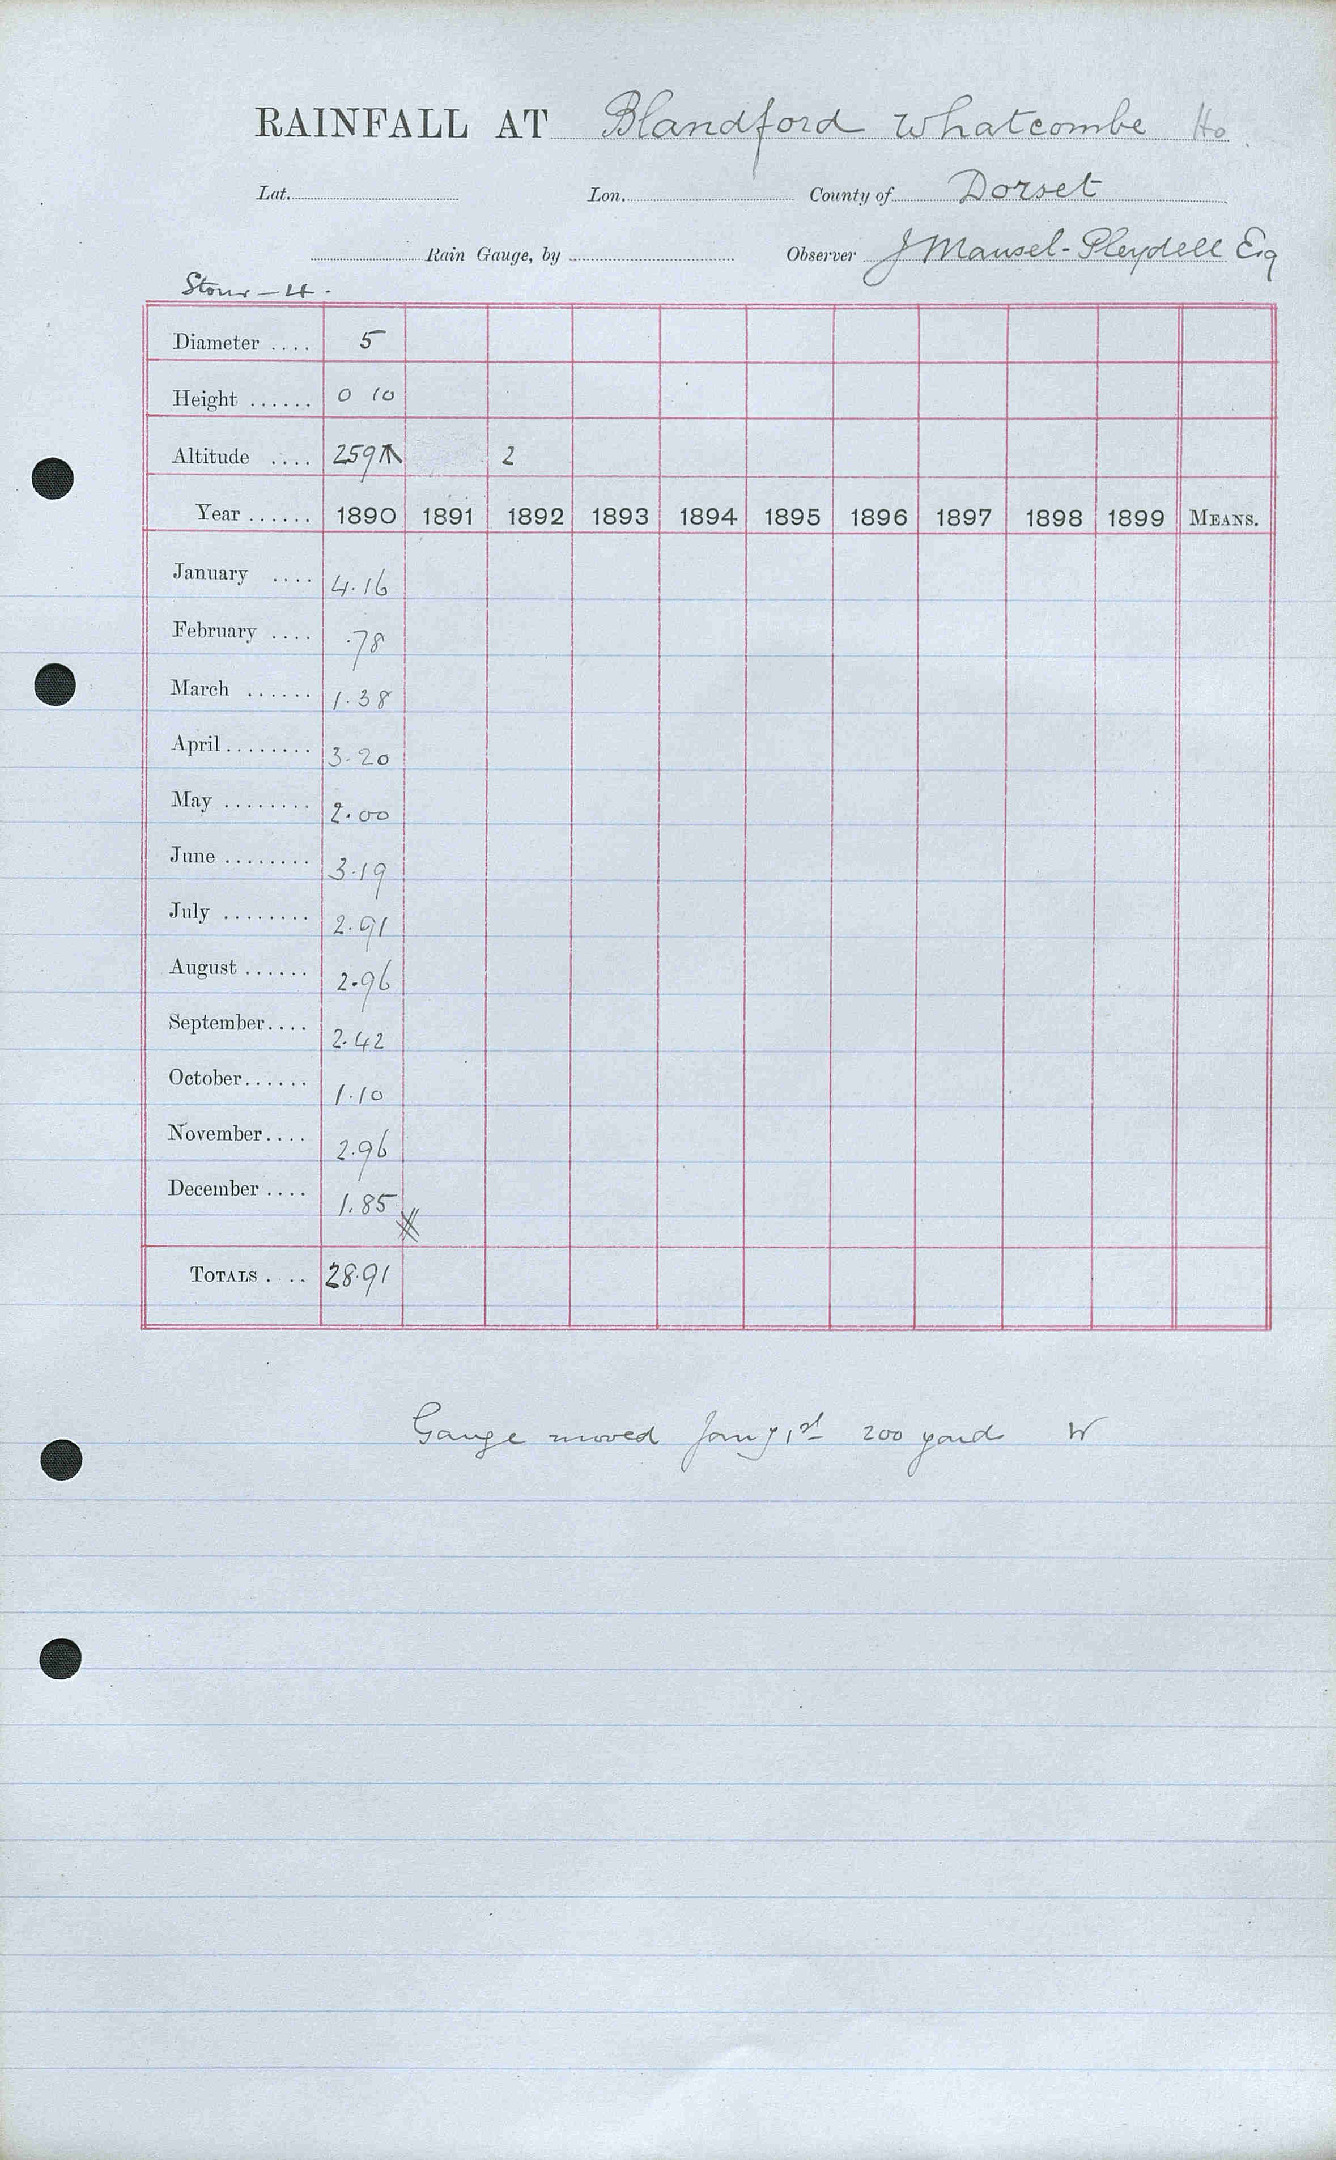 RAINFALL AT Blandford Whatcombe Ho
Lat. Lon. County of Dorset
Rain Gauge, by Observer J Mansel-Pleydell Esq
Stour - 4.
Diameter .... 5
Height ...... 0 10
Altitude .... 259 2
Year ...... 1890 1891 1892 1893 1894 1895 1896 1897 1898 1899 MEANS.
January .... 4.16
February .... .78
March ...... 1.38
April ........ 3.20
May ........ 2.00
June ........ 3.19
July ........ 2.91
August ...... 2.96
September.... 2.42
October...... 1.10
November.... 2.96
December .... 1.85
TOTALS . .. 28.91
Gauge moved Jany 1st 200 yards W